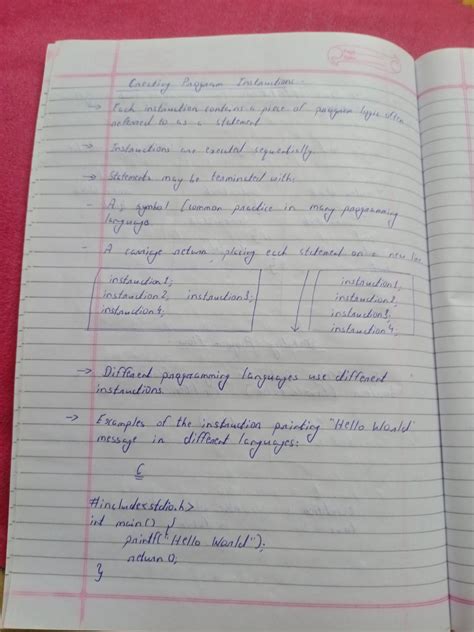 Page
Date
Creating Program Instructions:-
→ Each instruction contains a piece of program logic often
referred to as a statement
→ Instructions are executed sequentially.
→ Statements may be terminated with:
- A ; symbol (common practice in many programming
language
- A carriage return, placing each statement on a new line
instruction 1;
instruction 2; instruction 3;
instruction 4;
instruction 1;
instruction 2;
instruction 3;
instruction 4;
→ Different programming languages use different
instructions.
→ Examples of the instruction printing "Hello World"
message in different languages:
C
#include<stdio.h>
int main() {
printf("Hello World");
return 0;
}